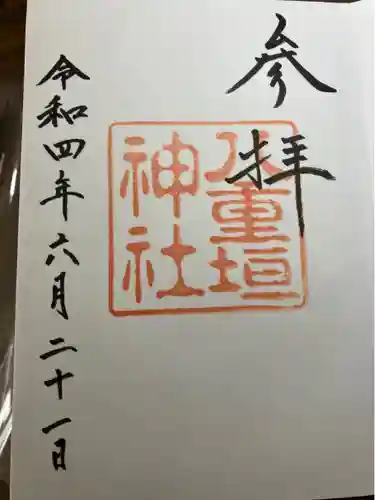 参拝
八重垣神社
令和四年六月二十一日